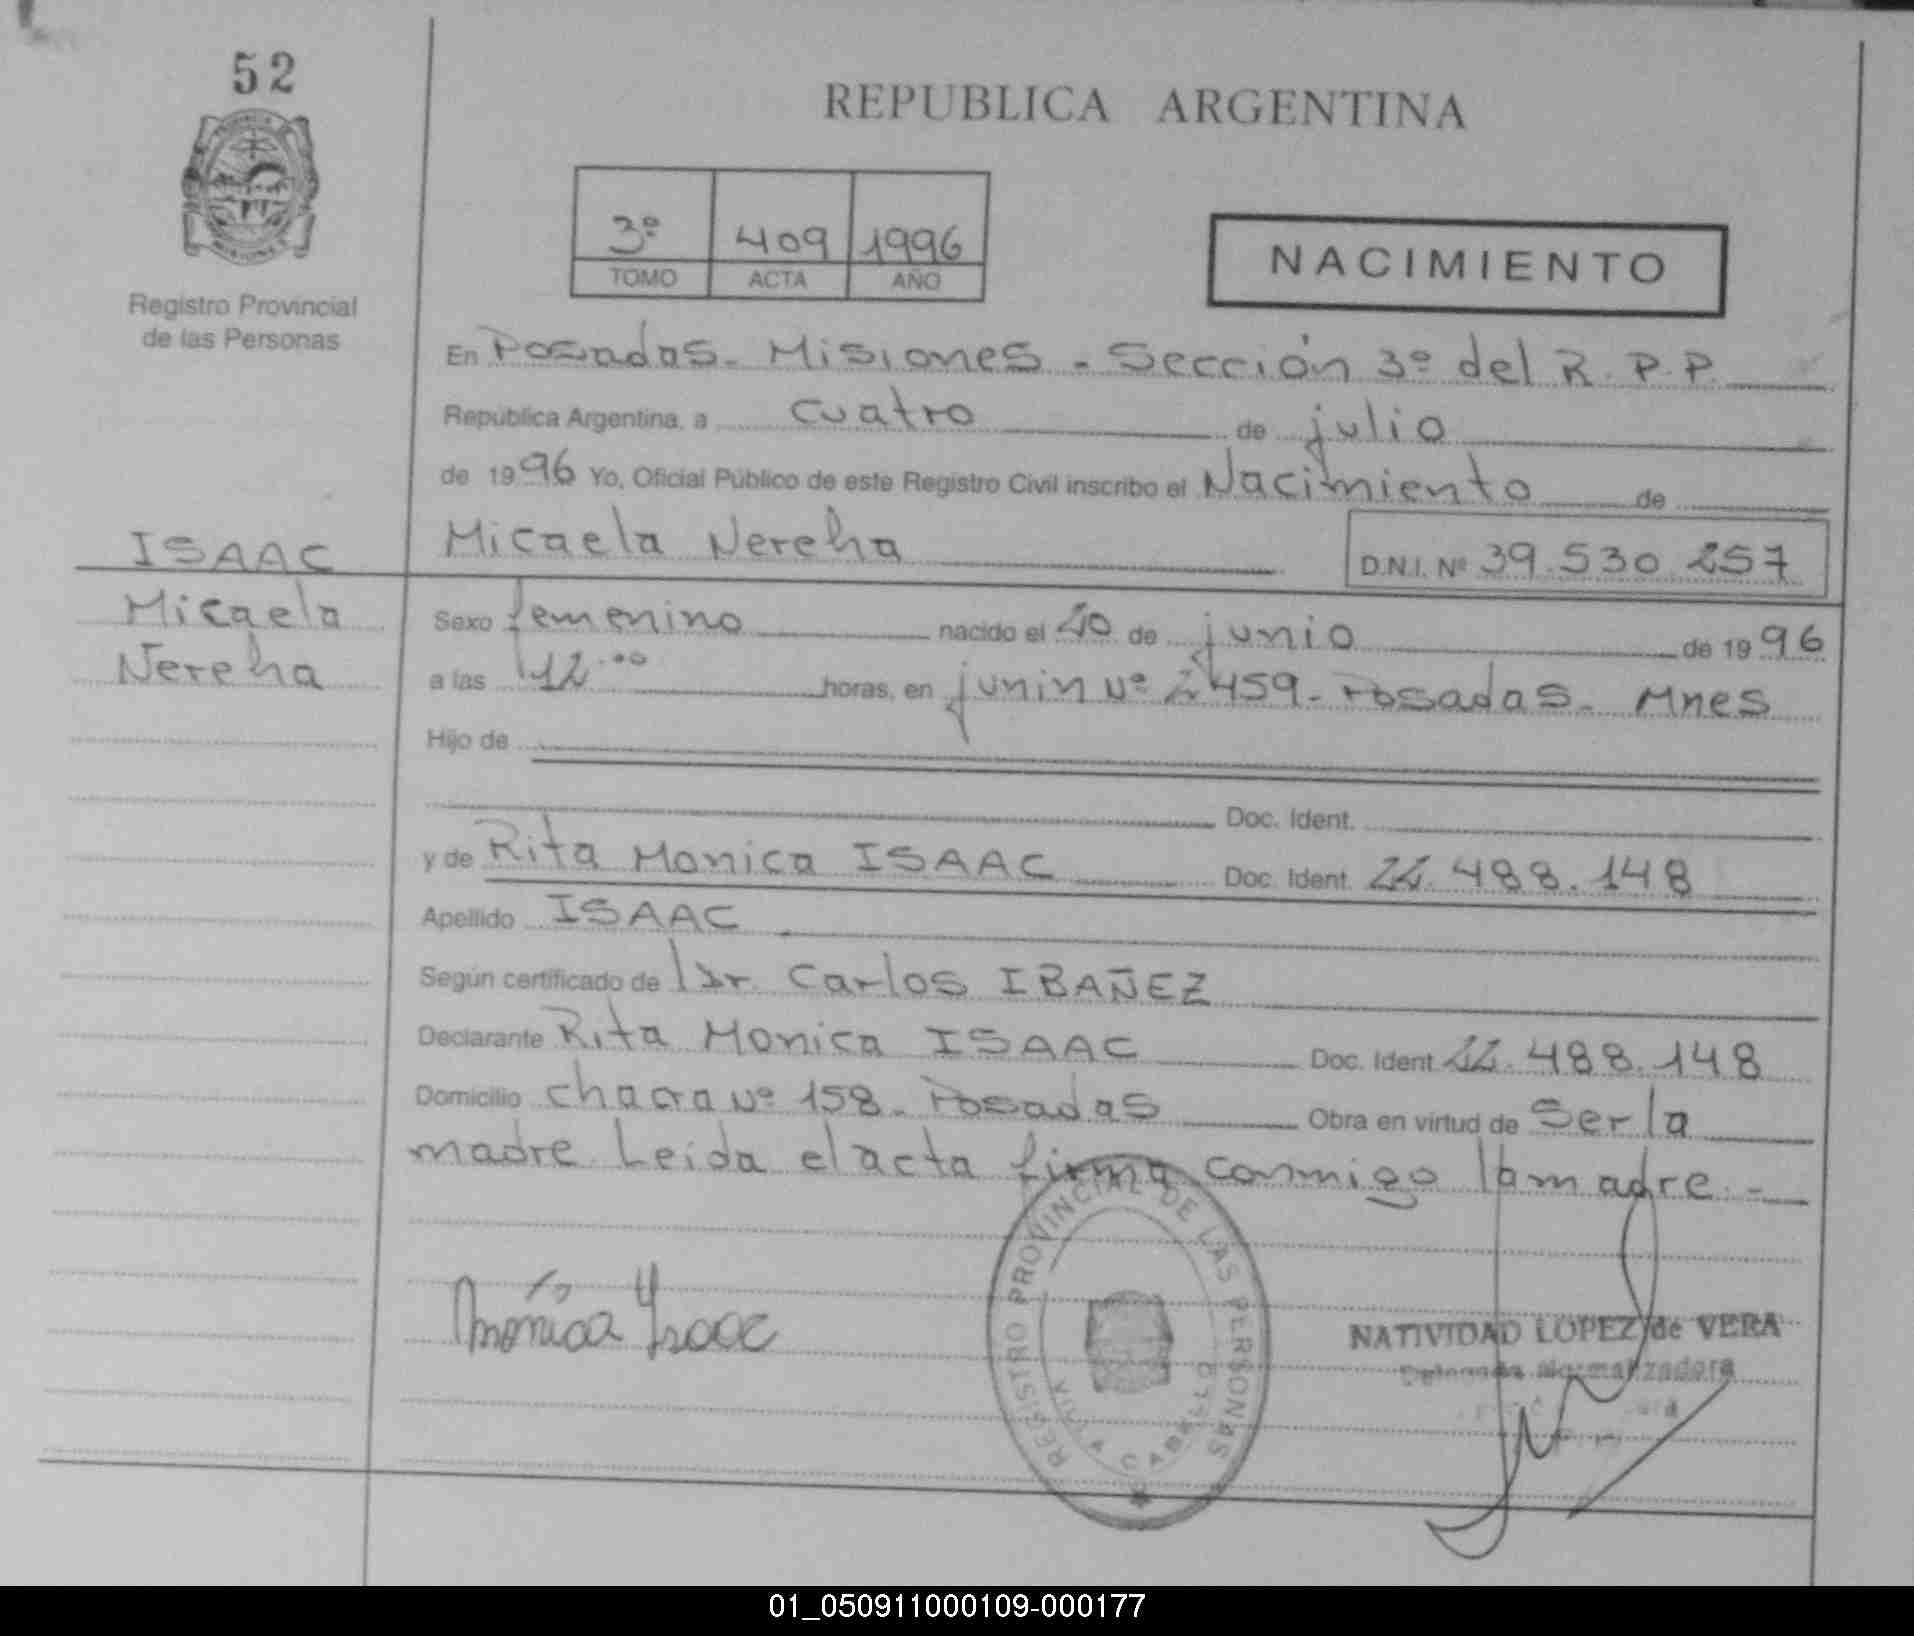 52
REPUBLICA ARGENTINA
3º 409 1996
TOMO ACTA AÑO
NACIMIENTO
Registro Provincial
de las Personas
En Posadas - Misiones - Sección 3º del R.P.P.
República Argentina, a cuatro de julio
de 1996 Yo, Oficial Público de este Registro Civil inscribo el Nacimiento de
ISAAC
Micaela Nereha
D.N.I. Nº 39.530.257
Micaela
Nereha
Sexo femenino nacido el 20 de junio de 1996
a las 12.00 horas, en junin Nº 2459 - Posadas - Mnes
Hijo de
Doc. Ident.
y de Rita Monica ISAAC Doc. Ident. 22.488.148
Apellido ISAAC
Según certificado de Dr. Carlos IBAÑEZ
Declarante Rita Monica ISAAC Doc. Ident 22.488.148
Domicilio chacra Nº 158 - Posadas Obra en virtud de Ser la
madre. Leída el acta firma conmigo la madre. -
Mónica Isaac
REGISTRO PROVINCIAL DE LAS PERSONAS
VILLA CABELLO
NATIVIDAD LOPEZ de VERA
Delegada Normalizadora
01_050911000109-000177